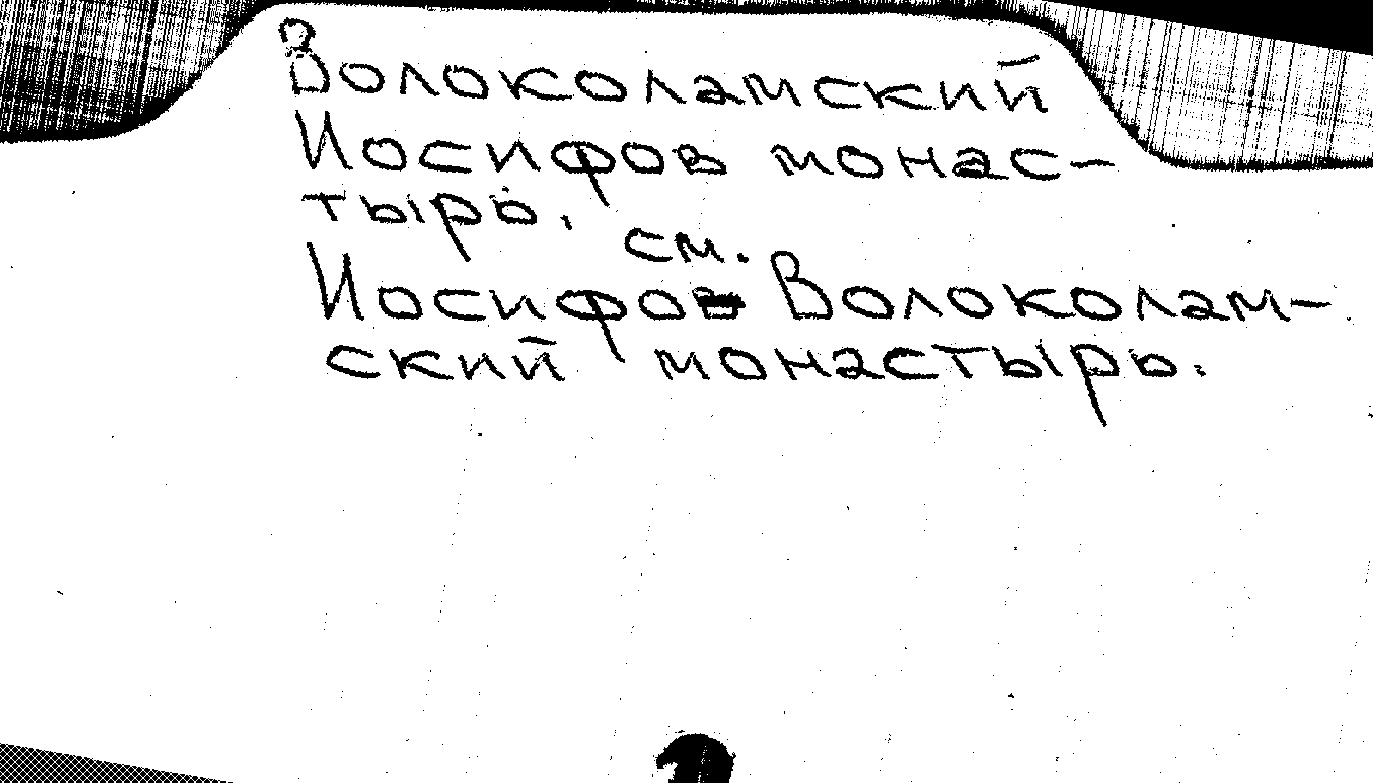 Волоколамский
Иосифов монас-
тырь,
см.
Иосифов Волоколам-
ский монастырь.